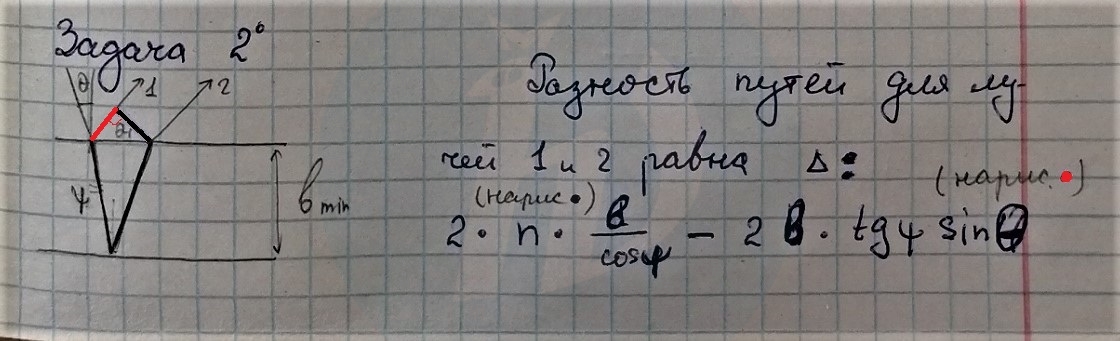 Задача 2°
θ 1 2
Разность путей для лу-
θ₁
чей 1 и 2 равна Δ:
ψ bmin (нарис •) (нарис. •)
2 · n · b/cosψ − 2b · tgψ sinθ